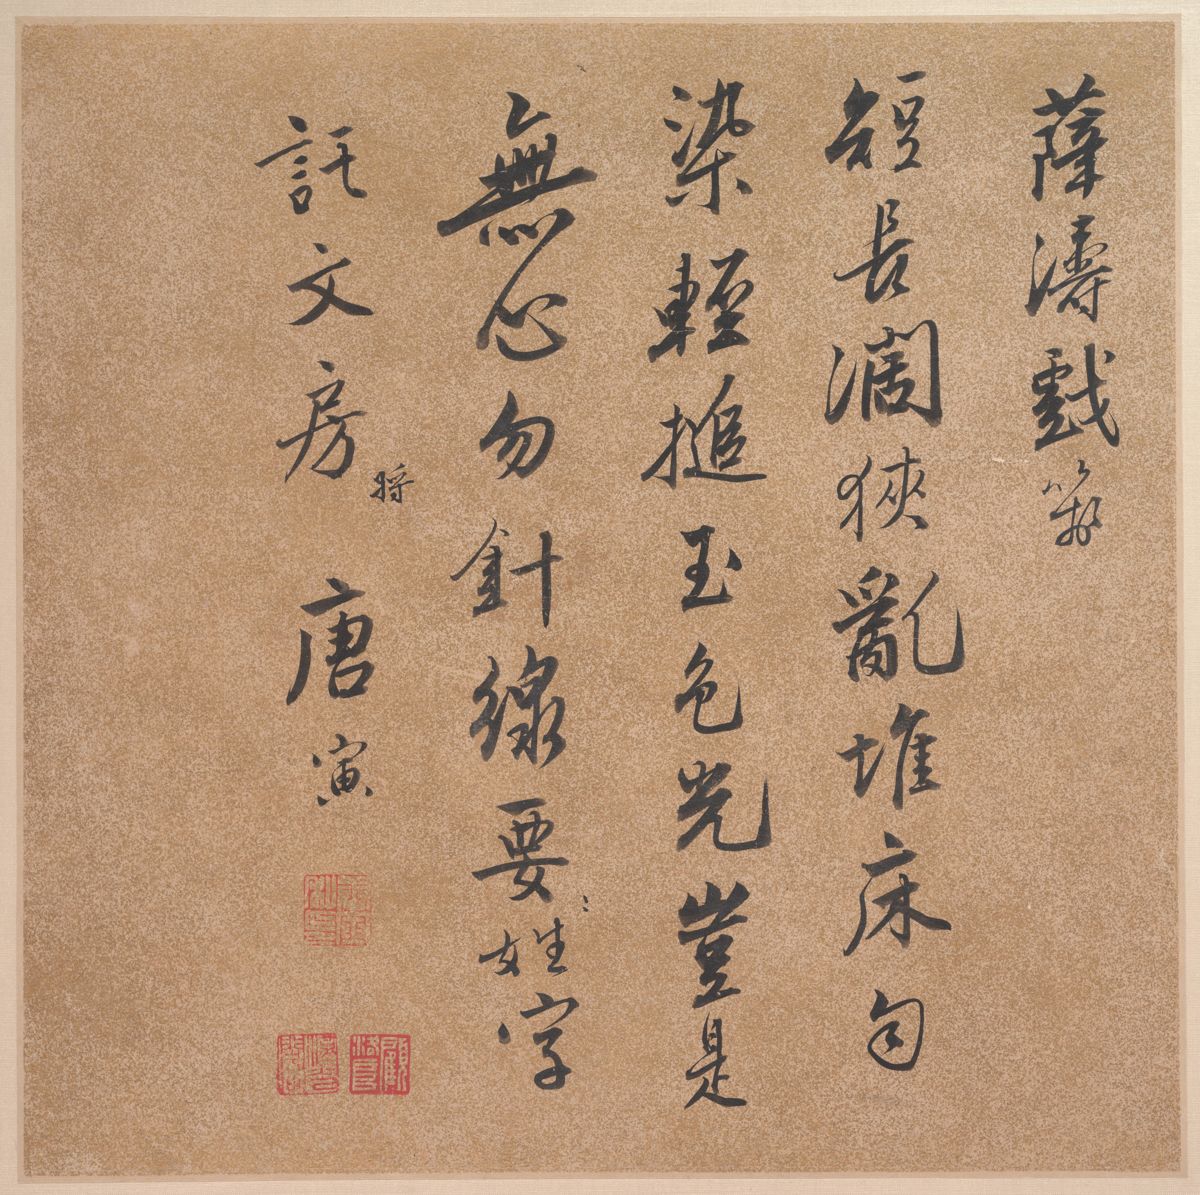 薛濤戲箋
短長濶狹亂堆床勻
染輕搥玉色光豈是
無心勿針線要姓字
託文房 將 唐寅
顧洛阜
漢光閣主